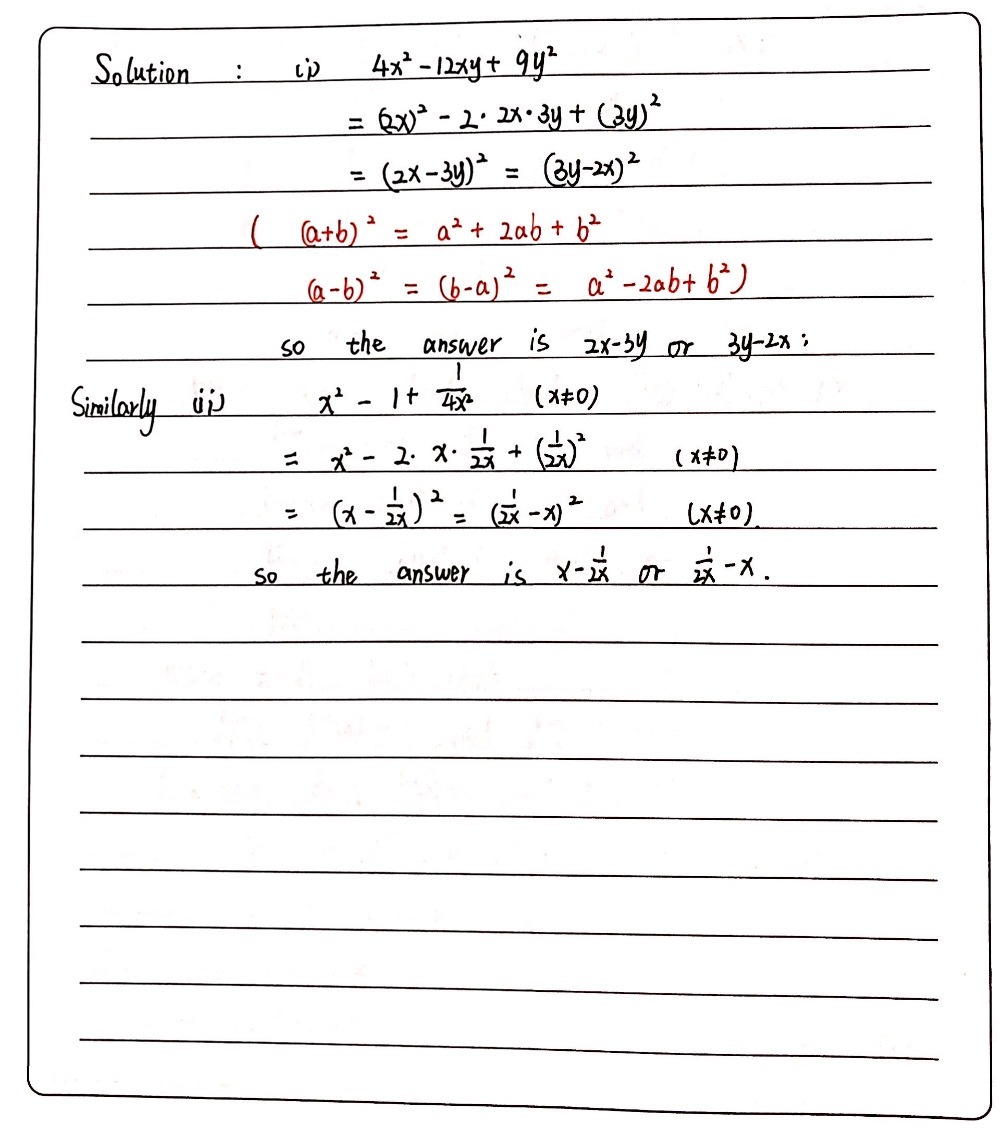 Solution : i) 4x² - 12xy + 9y²
= (2x)² - 2·2x·3y + (3y)²
= (2x-3y)² = (3y-2x)²
( (a+b)² = a² + 2ab + b²
(a-b)² = (b-a)² = a² - 2ab + b² )
so the answer is 2x-3y or 3y-2x ;
Similarly ii) x² - 1 + 1/4x² (x≠0)
= x² - 2·x·1/2x + (1/2x)² (x≠0)
= (x - 1/2x)² = (1/2x - x)² (x≠0).
so the answer is x - 1/2x or 1/2x - x .